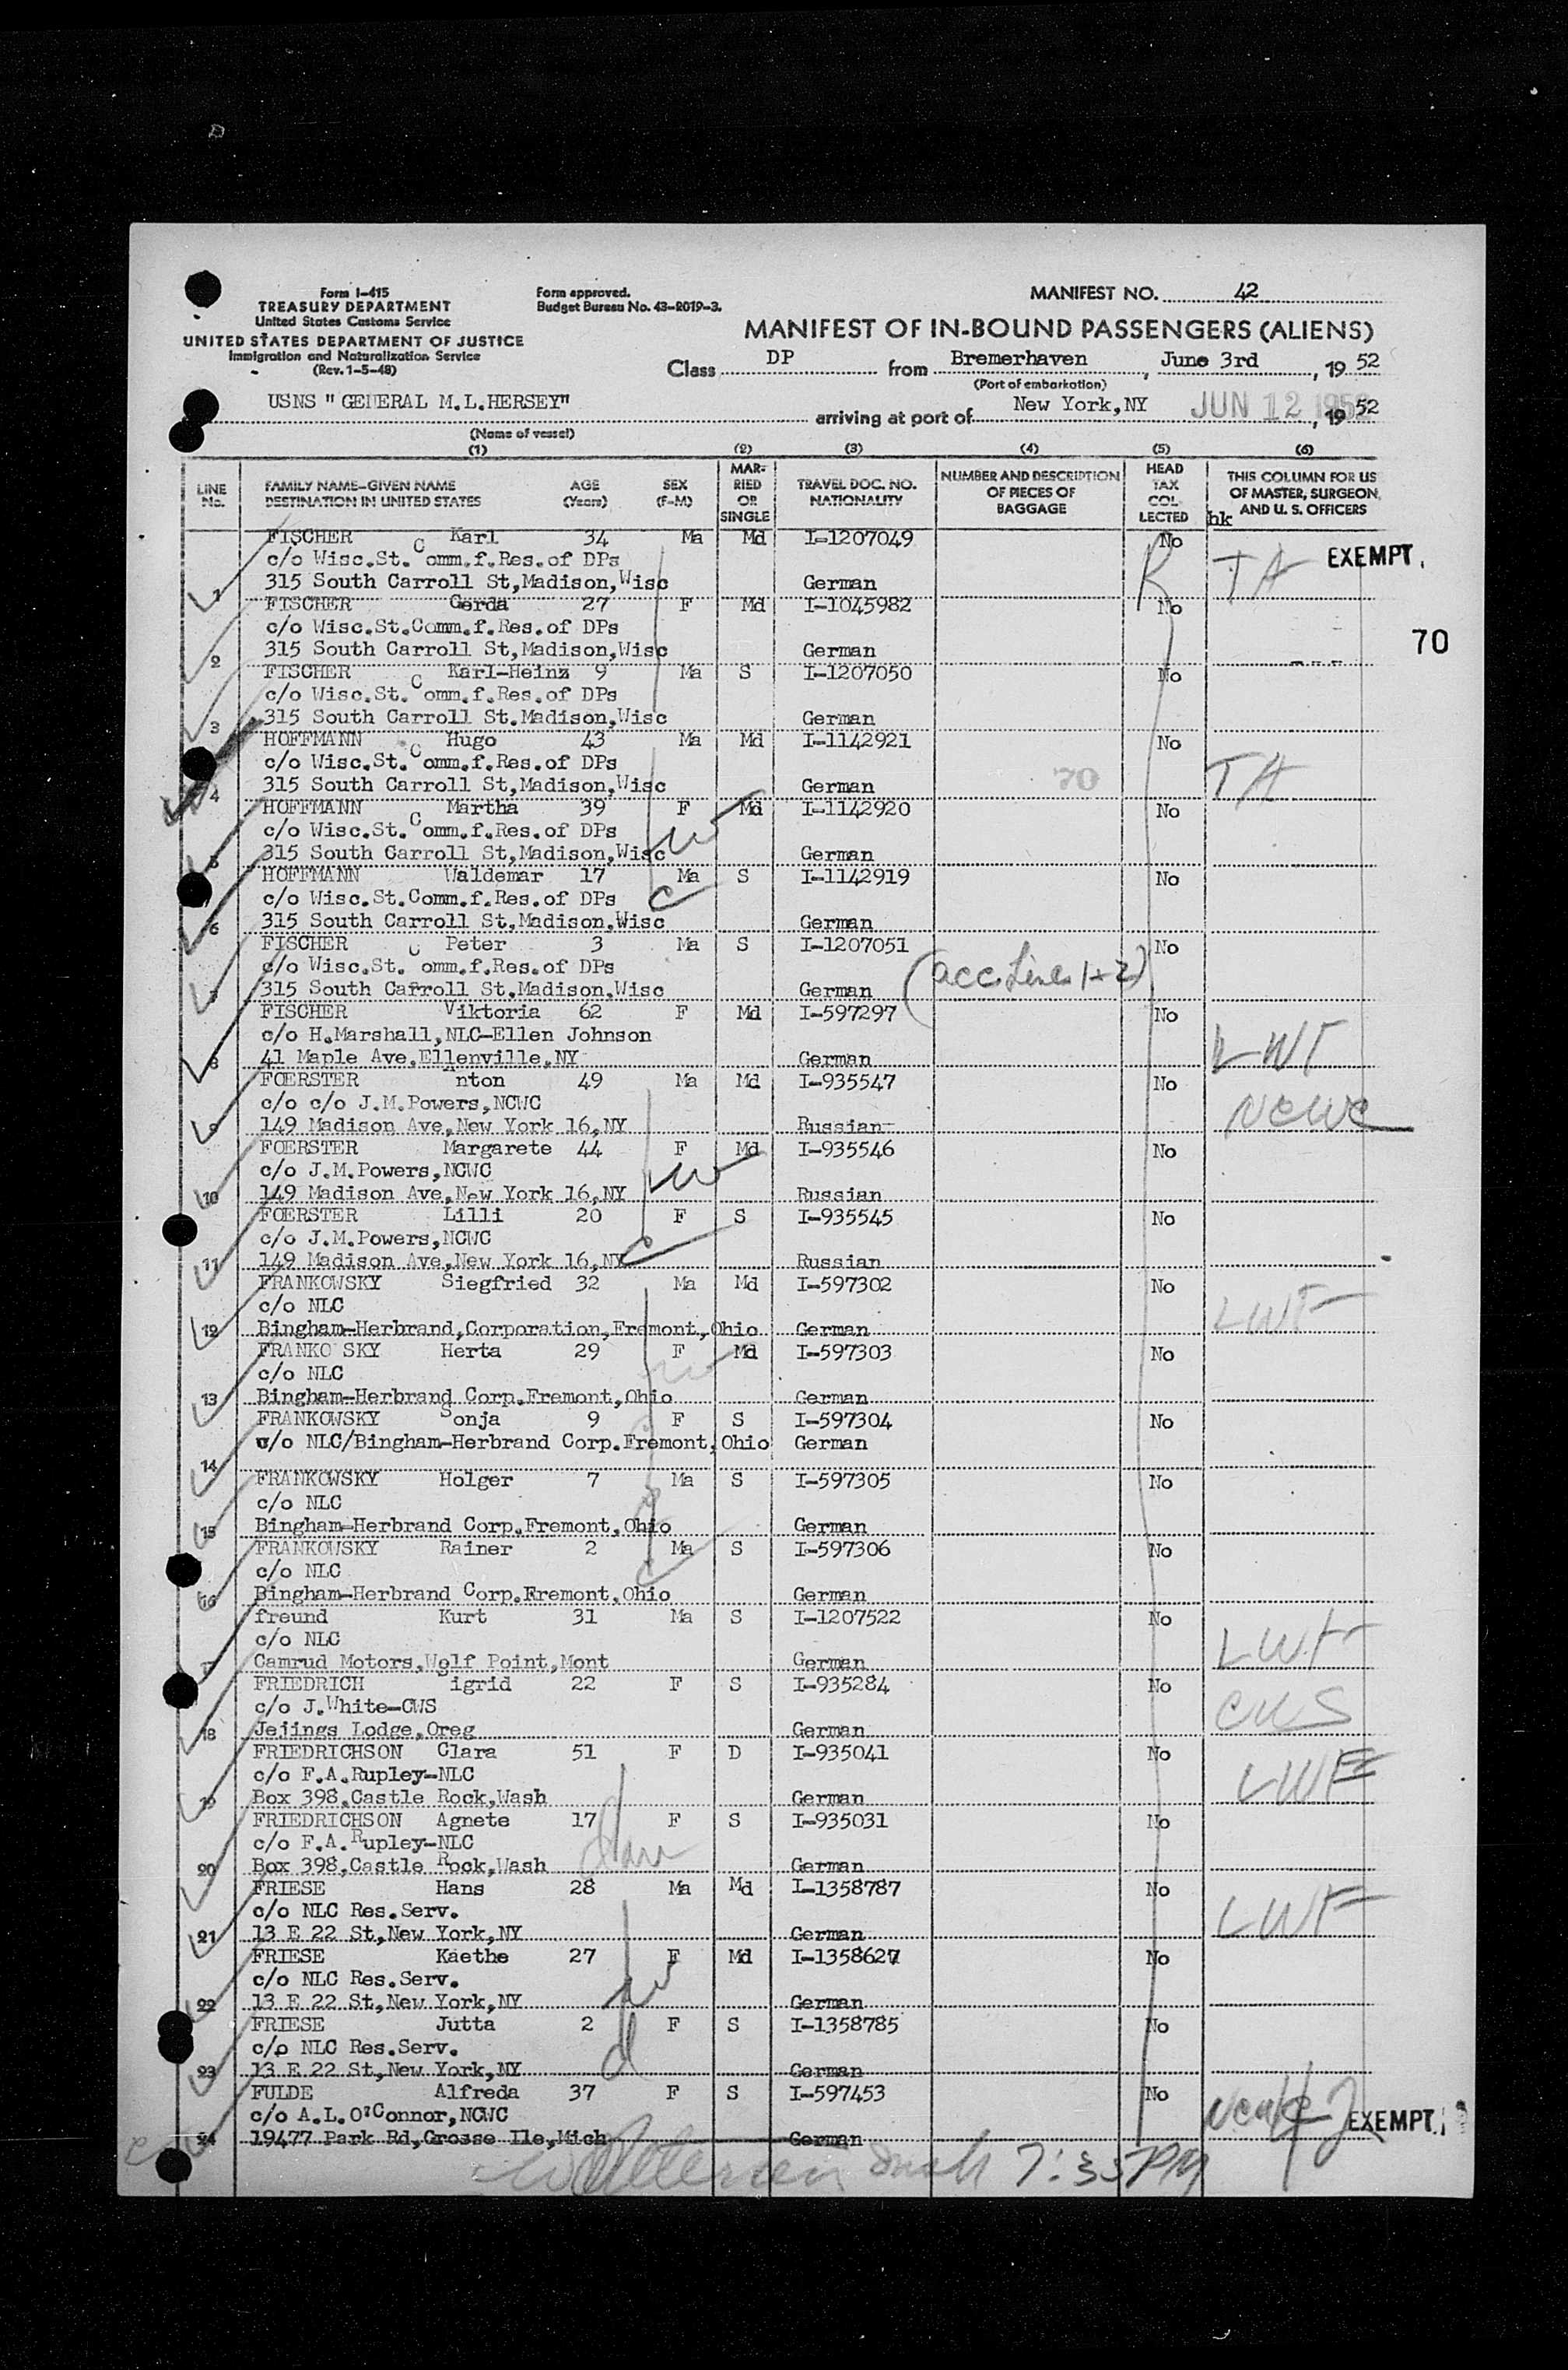 Form I-415
TREASURY DEPARTMENT
United States Customs Service
UNITED STATES DEPARTMENT OF JUSTICE
Immigration and Naturalization Service
(Rev. 1-5-48)
Form approved.
Budget Bureau No. 43-R019-3.
MANIFEST NO. 42
MANIFEST OF IN-BOUND PASSENGERS (ALIENS)
Class DP from Bremerhaven, June 3rd, 19 52
(Port of embarkation)
USNS " GENERAL M.L.HERSEY" arriving at port of New York,NY JUN 12 195 , 19 52
(Name of vessel)
(1) (2) (3) (4) (5) (6)
LINE No. FAMILY NAME-GIVEN NAME DESTINATION IN UNITED STATES AGE (Years) SEX (F-M) MARRIED OR SINGLE TRAVEL DOC. NO. NATIONALITY NUMBER AND DESCRIPTION OF PIECES OF BAGGAGE HEAD TAX COLLECTED THIS COLUMN FOR US OF MASTER, SURGEON, AND U. S. OFFICERS
hk
FISCHER Karl 34 Ma Md I-1207049 No TA EXEMPT.
c/o Wisc.St. Comm.f.Res.of DPs
1 315 South Carroll St,Madison,Wisc German
FISCHER Gerda 27 F Md I-1045982 No
c/o Wisc.St.Comm.f.Res.of DPs 70
2 315 South Carroll St,Madison,Wisc German
FISCHER Karl-Heinz 9 Ma S I-1207050 No
c/o Wisc.St. Comm.f.Res.of DPs
3 315 South Carroll St.Madison,Wisc German
HOFFMANN Hugo 43 Ma Md I-1142921 No
c/o Wisc.St. Comm.f.Res.of DPs TA
4 315 South Carroll St,Madison,Wisc German 70
HOFFMANN Martha 39 F Md I-1142920 No
c/o Wisc.St. Comm.f.Res.of DPs w
5 315 South Carroll St,Madison,Wisc German
HOFFMANN Waldemar 17 Ma S I-1142919 No
c/o Wisc.St.Comm.f.Res.of DPs c
6 315 South Carroll St,Madison,Wisc German
FISCHER Peter 3 Ma S I-1207051 No
c/o Wisc.St. Comm.f.Res.of DPs (acc. Line 1+2)
7 315 South Carroll St.Madison,Wisc German
FISCHER Viktoria 62 F Md I-597297 No
c/o H.Marshall,NLC-Ellen Johnson LWF
8 41 Maple Ave,Ellenville,NY German
FOERSTER Anton 49 Ma Md I-935547 No
c/o c/o J.M.Powers,NCWC NCWC
9 149 Madison Ave,New York 16,NY Russian
FOERSTER Margarete 44 F Md I-935546 No
c/o J.M.Powers,NCWC w
10 149 Madison Ave,New York 16,NY Russian
FOERSTER Lilli 20 F S I-935545 No
c/o J.M.Powers,NCWC c
11 149 Madison Ave,New York 16,NY Russian
FRANKOWSKY Siegfried 32 Ma Md I-597302 No
c/o NLC LWF
12 Bingham-Herbrand,Corporation,Fremont,Ohio German
FRANKO SKY Herta 29 F Md I-597303 No
c/o NLC w
13 Bingham-Herbrand Corp.Fremont,Ohio German
FRANKOWSKY Sonja 9 F S I-597304 No
c/o NLC/Bingham-Herbrand Corp.Fremont,Ohio German
14
FRANKOWSKY Holger 7 Ma S I-597305 No
c/o NLC
15 Bingham-Herbrand Corp.Fremont,Ohio German
FRANKOWSKY Rainer 2 Ma S I-597306 No
c/o NLC c
16 Bingham-Herbrand Corp.Fremont,Ohio German
freund Kurt 31 Ma S I-1207522 No
c/o NLC LWF
17 Camrud Motors,Wolf Point,Mont German
FRIEDRICH igrid 22 F S I-935284 No
c/o J.White-CWS CWS
18 Jejings Lodge,Oreg German
FRIEDRICHSON Clara 51 F D I-935041 No
c/o F.A.Rupley-NLC LWF
19 Box 398,Castle Rock,Wash German
FRIEDRICHSON Agnete 17 F S I-935031 No
c/o F.A.Rupley-NLC dau
20 Box 398,Castle Rock,Wash German
FRIESE Hans 28 Ma Md I-1358787 No
c/o NLC Res.Serv. LWF
21 13 E 22 St,New York,NY German
FRIESE Kaethe 27 F Md I-1358627 No
c/o NLC Res.Serv. w
22 13 E 22 St,New York,NY German
FRIESE Jutta 2 F S I-1358785 No
c/o NLC Res.Serv. d
23 13 E 22 St,New York,NY German
FULDE Alfreda 37 F S I-597453 No
c/o A.L.O'Connor,NCWC NCWC EXEMPT.
24 19477 Park Rd,Grosse Ile,Mich German
7:35 PM